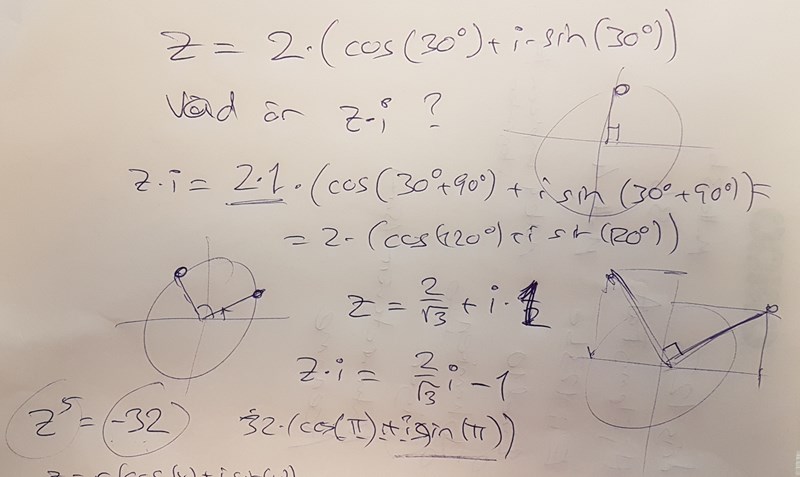 z = 2·(cos(30°)+i·sin(30°))
Vad är z·i ?
z·i = 2·1·(cos(30°+90°) + i sin(30°+90°) =
= 2·(cos(120°)+i sin(120°))
z = 2/√3 + i·1
z·i = 2/√3 i - 1
z⁵ = -32
32·(cos(π)+i sin(π))